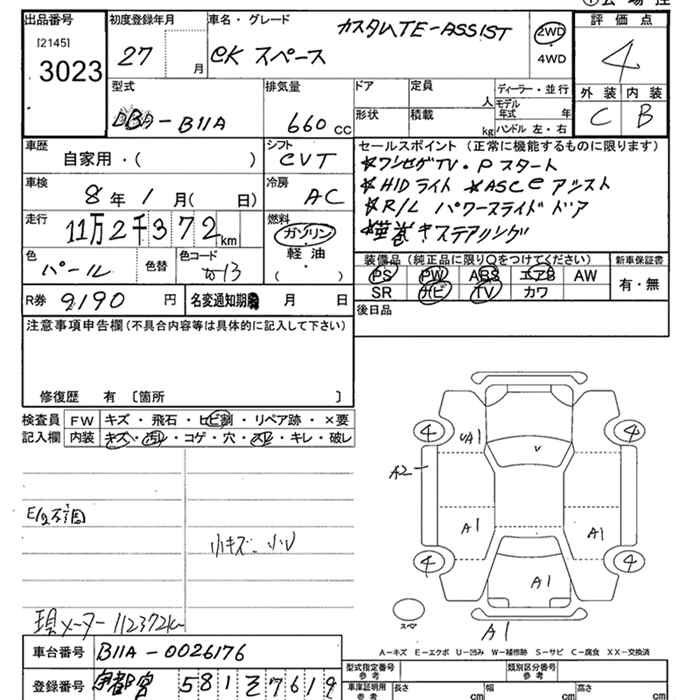 出品番号
[2145]
3023
初度登録年月
27 月
車名・グレード
カスタムTE-ASSIST
eK スペース
2WD
4WD
評価点
4
外装 内装
C B
型式
DBA-B11A
排気量
660 cc
ドア 定員
人
形状 積載
kg
ディーラー・並行
モデル年式 年
ハンドル 左・右
車歴
自家用・( )
シフト
CVT
車検
8年 1月( 日)
冷房
AC
走行
11万2千372km
燃料
ガソリン
軽油
( )
色
パール
色替
色コード
W13
R券 9190 円
名変通知期 月 日
セールスポイント(正常に機能するものに限ります)
★ワンセグTV・Pスタート
★HIDライト ★ASC eアシスト
★R/L パワースライドドア
★革巻きステアリング
装備品(純正品に限り○をつけてください)
新車保証書
PS PW ABS エアB AW
SR ナビ TV カワ
有・無
後日品
注意事項申告欄(不具合内容等は具体的に記入して下さい)
修復歴 有 [箇所 ]
検査員記入欄
FW キズ・飛石・ヒビ割・リペア跡・×要
内装 キズ・汚れ・コゲ・穴・スレ・キレ・破レ
小キズ、小U
現メーター 112372km
車台番号 B11A-0026176
登録番号 宇都宮 581 そ 7619
4 4
UA1
V
A2
A1 A1
4 4
A1
スペア
A1
A-キズ E-エクボ U-凹み W-補修跡 S-サビ C-腐食 XX-交換済
型式指定番号 参考
類別区分番号 参考
車庫証明用 参考
長さ cm 幅 cm 高さ cm